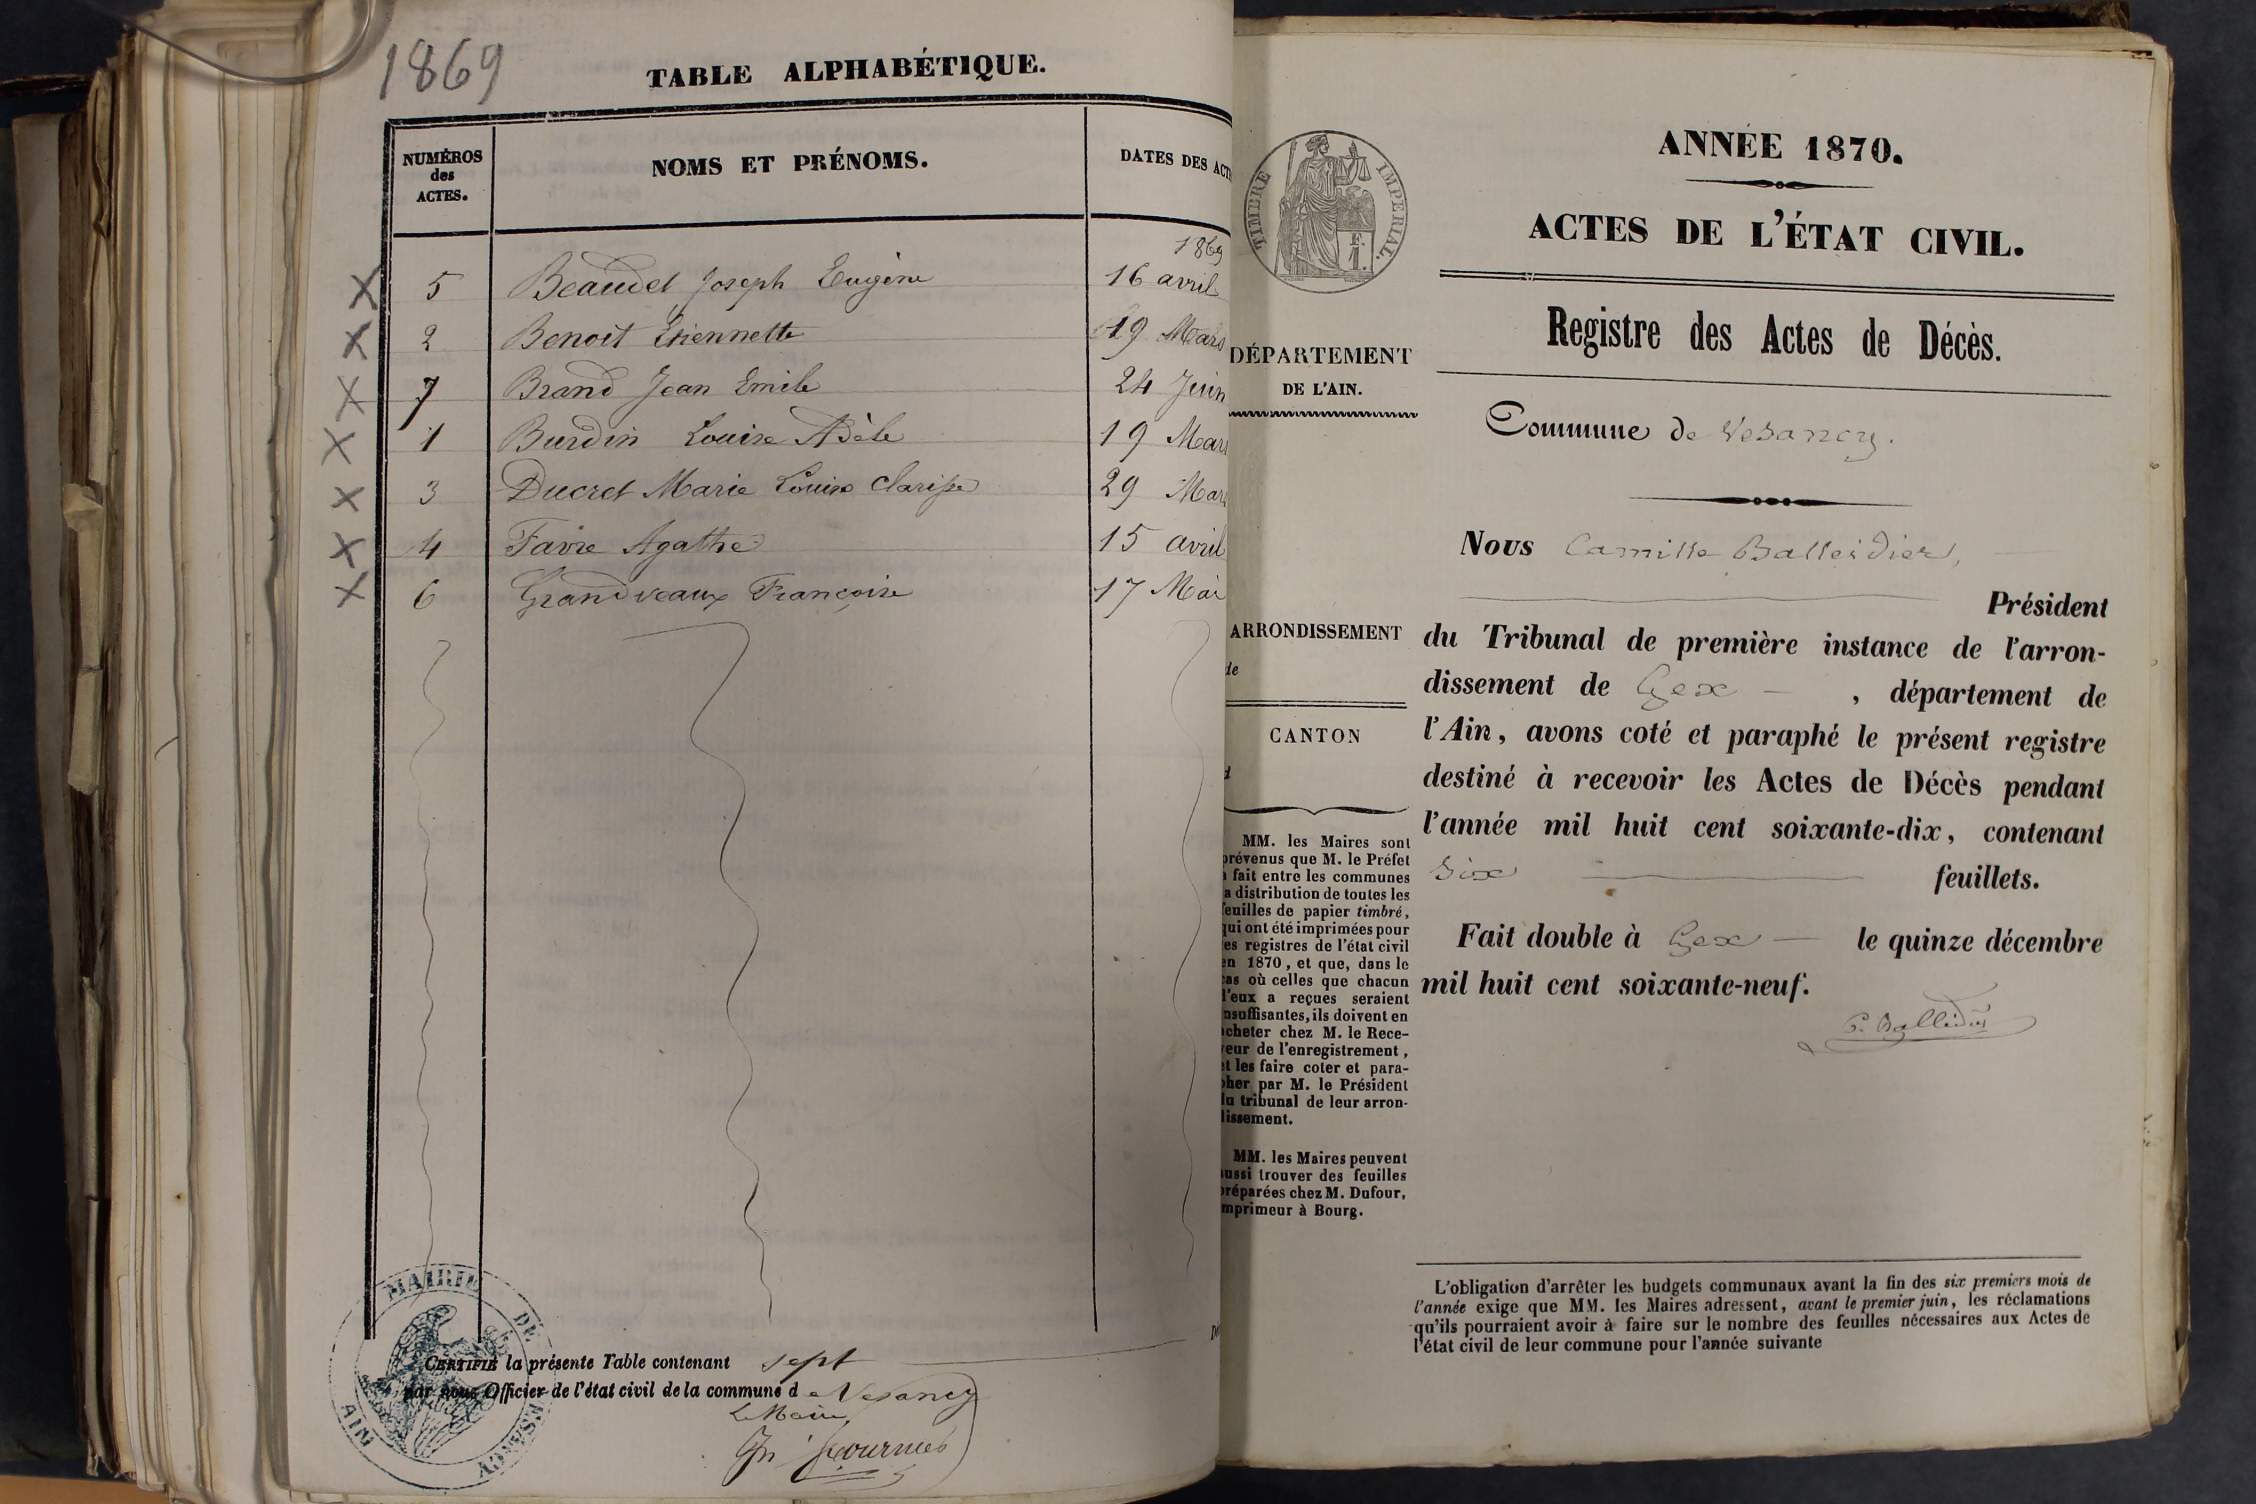 1869
TABLE ALPHABÉTIQUE.
NUMÉROS
des
ACTES.
NOMS ET PRÉNOMS.
DATES DES ACT
1869
5 Beaudet Joseph Eugène 16 avril
2 Benoit Etiennette 19 Mars
7 Brand Jean Emile 24 Juin
1 Burdin Louise Adèle 19 Mars
3 Ducret Marie Louise Clarisse 29 Mars
4 Favre Agathe 15 avril
6 Grandveaux Françoise 17 Mai
CERTIFIÉ la présente Table contenant sept
par nous Officier de l'état civil de la commune de Vesancy
Le Maire,
MAIRIE DE VESANCY
AIN
TIMBRE IMPERIAL.
1 F.
DÉPARTEMENT
DE L'AIN.
ARRONDISSEMENT
de
CANTON
d
MM. les Maires sont
prévenus que M. le Préfet
a fait entre les communes
la distribution de toutes les
feuilles de papier timbré,
qui ont été imprimées pour
les registres de l'état civil
en 1870, et que, dans le
cas où celles que chacun
d'eux a reçues seraient
insuffisantes, ils doivent en
acheter chez M. le Rece-
veur de l'enregistrement,
et les faire coter et para-
pher par M. le Président
du tribunal de leur arron-
dissement.
MM. les Maires peuvent
aussi trouver des feuilles
préparées chez M. Dufour,
imprimeur à Bourg.
ANNÉE 1870.
ACTES DE L'ÉTAT CIVIL.
Registre des Actes de Décès.
Commune de Vesancy.
Nous Camille Balleidier,
Président
du Tribunal de première instance de l'arron-
dissement de Gex, département de
l'Ain, avons coté et paraphé le présent registre
destiné à recevoir les Actes de Décès pendant
l'année mil huit cent soixante-dix, contenant
Six feuillets.
Fait double à Gex le quinze décembre
mil huit cent soixante-neuf.
C. Balleidier
L'obligation d'arrêter les budgets communaux avant la fin des six premiers mois de
l'année exige que MM. les Maires adressent, avant le premier juin, les réclamations
qu'ils pourraient avoir à faire sur le nombre des feuilles nécessaires aux Actes de
l'état civil de leur commune pour l'année suivante